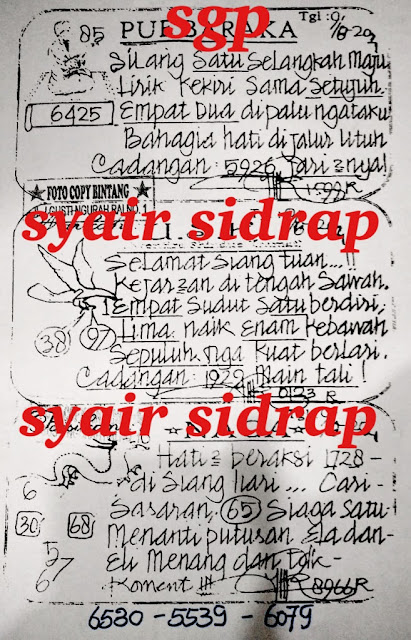 sgp
Tgl :
85
PURBARAKA
Silang Satu Selangkah Maju
Lirik Kekiri Sama Setujuh
6425
Empat Dua dipalu ngataku
Bahagia hati di jalur Utuh
Cadangan : 5926 Jari2nya!
★ FOTO COPY BINTANG ★
JL. GUSTI NGURAH RAI NO. 1
syair sidrap
Selamat Siang tuan...!!
Kejar2an di tengah Sawah.
Empat Sudut Satu berdiri,
Lima naik Enam kebawah
38 97
Sepuluh tiga kuat berlari.
Cadangan : 1929 Main tali !
0123 R
syair sidrap
Hati2 beraksi 1728 -
di Siang Hari ... Cari -
6
Sasaran, 65 Siaga satu!
30 68
Menanti putusan Ela dan -
5
Eli Menang dan tdk -
67
Koment !!!
8966 R
6530 - 5539 - 6079